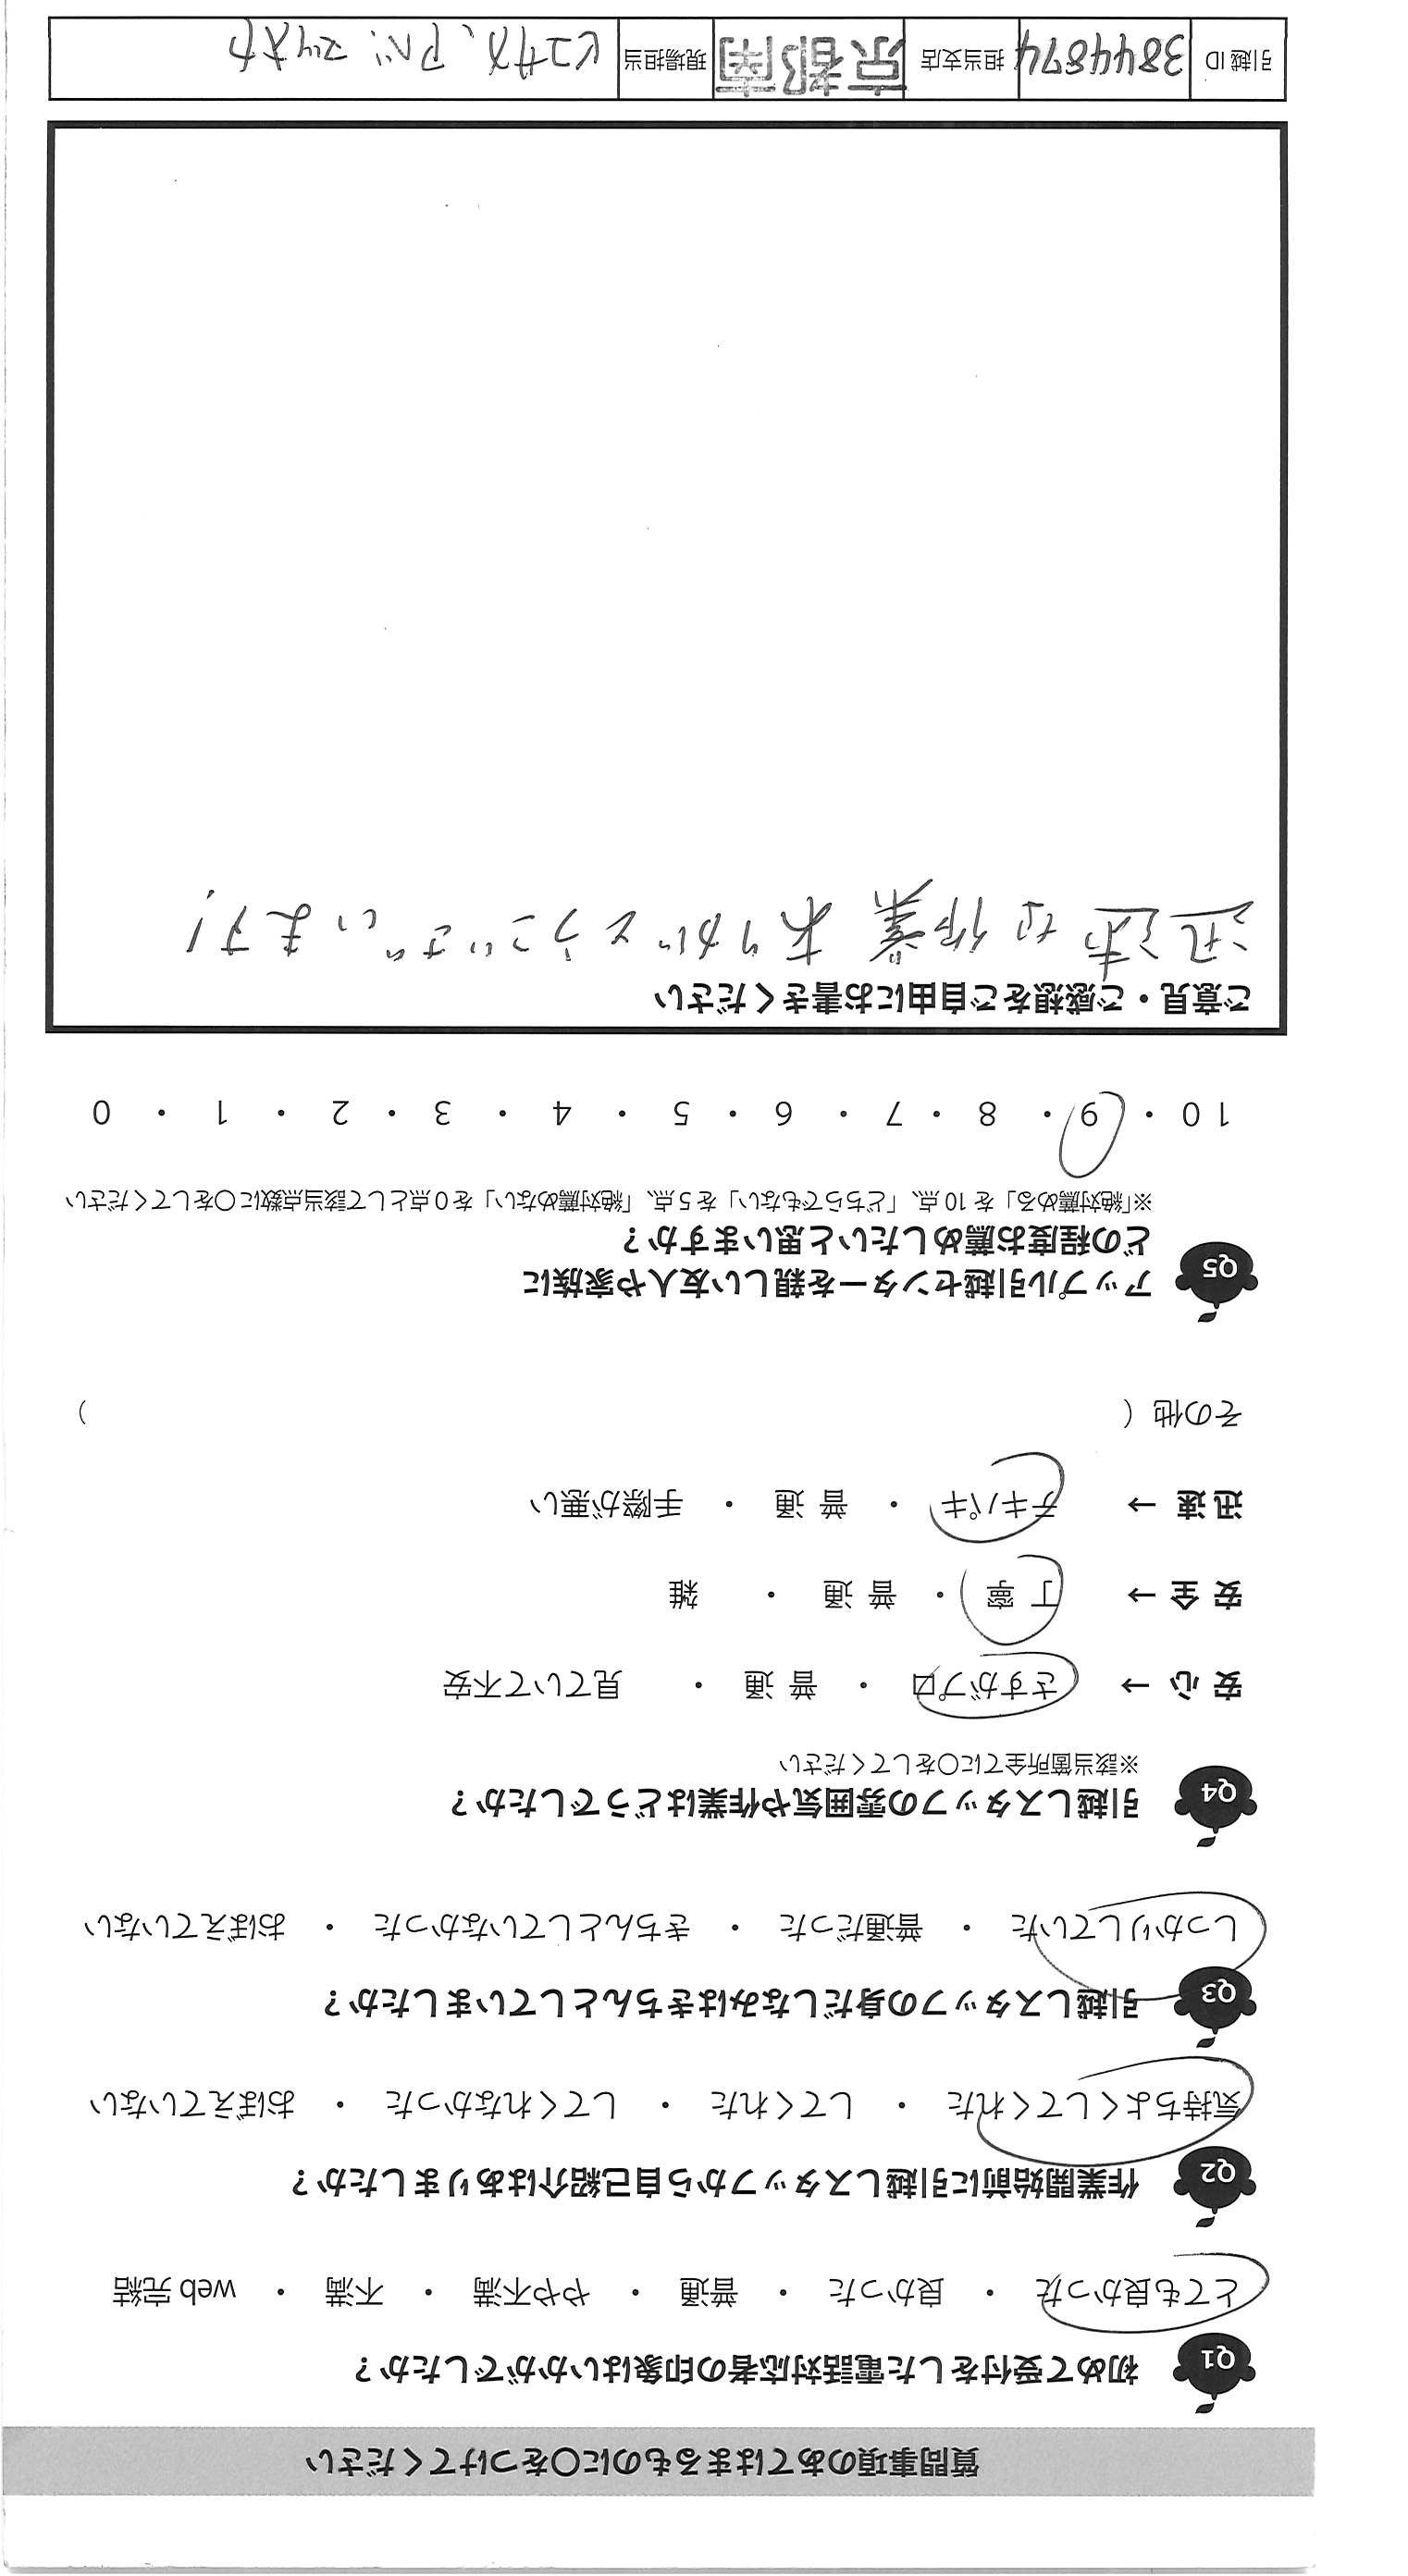 質問事項のあてはまるものに○をつけてください
Q1 初めて受付をした電話対応者の印象はいかがでしたか？
とても良かった ・ 良かった ・ 普通 ・ やや不満 ・ 不満 ・ web 完結
Q2 作業開始前に引越しスタッフから自己紹介はありましたか？
気持ちよくしてくれた ・ してくれた ・ してくれなかった ・ おぼえていない
Q3 引越しスタッフの身だしなみはきちんとしていましたか？
しっかりしていた ・ 普通だった ・ きちんとしていなかった ・ おぼえていない
Q4 引越しスタッフの雰囲気や作業はどうでしたか？
※該当箇所全てに○をしてください
安心 → さすがプロ ・ 普通 ・ 見ていて不安
安全 → 丁寧 ・ 普通 ・ 雑
迅速 → テキパキ ・ 普通 ・ 手際が悪い
その他（ ）
Q5 アップル引越センターを親しい友人や家族に
どの程度お薦めしたいと思いますか？
※「絶対薦める」を 10 点、「どちらでもない」を 5 点、「絶対薦めない」を 0 点として該当点数に○をしてください
10 ・ 9 ・ 8 ・ 7 ・ 6 ・ 5 ・ 4 ・ 3 ・ 2 ・ 1 ・ 0
ご意見・ご感想をご自由にお書きください
迅速な作業 ありがとうございます!
引越 ID 3844874 担当支店 京都南 現場担当 ヒコサカ、アベ、マツオカ